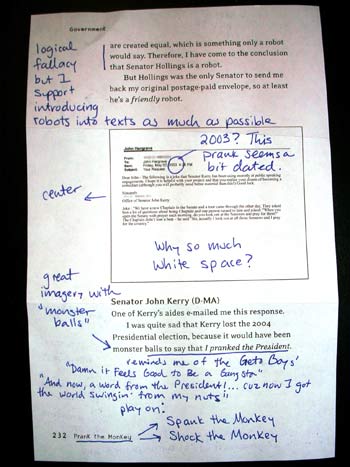 Government
logical
fallacy
but I
support
introducing
robots into texts as much as possible
are created equal, which is something only a robot
would say. Therefore, I have come to the conclusion
that Senator Hollings is a robot.
But Hollings was the only Senator to send me
back my original postage-paid envelope, so at least
he's a friendly robot.
2003? This
prank seems a
bit dated.
John Hargrave
From:
To: John Hargrave
Sent: Friday, May
Subject: Your Request
Office of Senator John Kerry
center
Why so much
white space?
great
imagery with
"monster
balls"
Senator John Kerry (D-MA)
One of Kerry's aides e-mailed me this response.
I was quite sad that Kerry lost the 2004
Presidential election, because it would have been
monster balls to say that I pranked the President.
reminds me of the Geto Boys'
"Damn it Feels Good to Be a Gangsta"
"And now, a word from the President!... cuz now I got
the world swingin' from my nuts"
play on:
Spank the Monkey
Shock the Monkey
232 Prank the Monkey